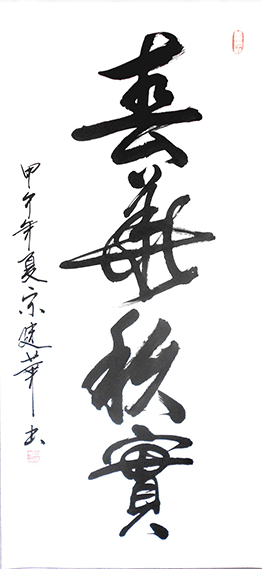 春華秋實
甲午年夏宗建華書